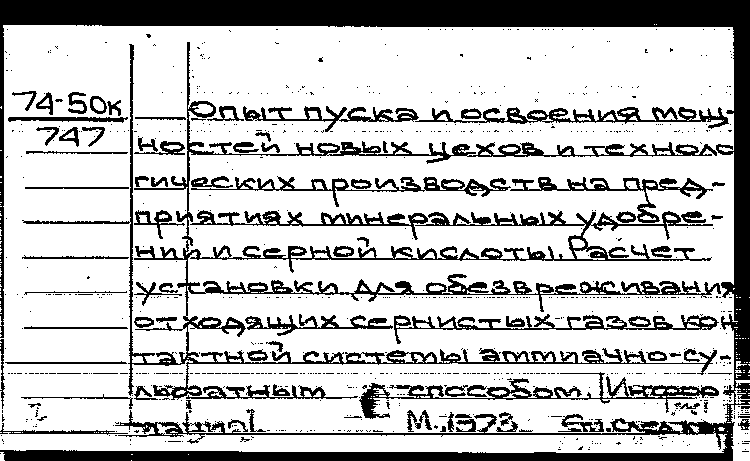 74-50к
747
Опыт пуска и освоения мощ-
ностей новых цехов и техноло
гических производств на пред-
приятиях минеральных удобре-
ний и серной кислоты. Расчет
установки для обезвреживания
отходящих сернистых газов кон
тактной системы аммиачно-су-
льфатным способом. [Инфор-
мация]. М., 1973 См. след. кар